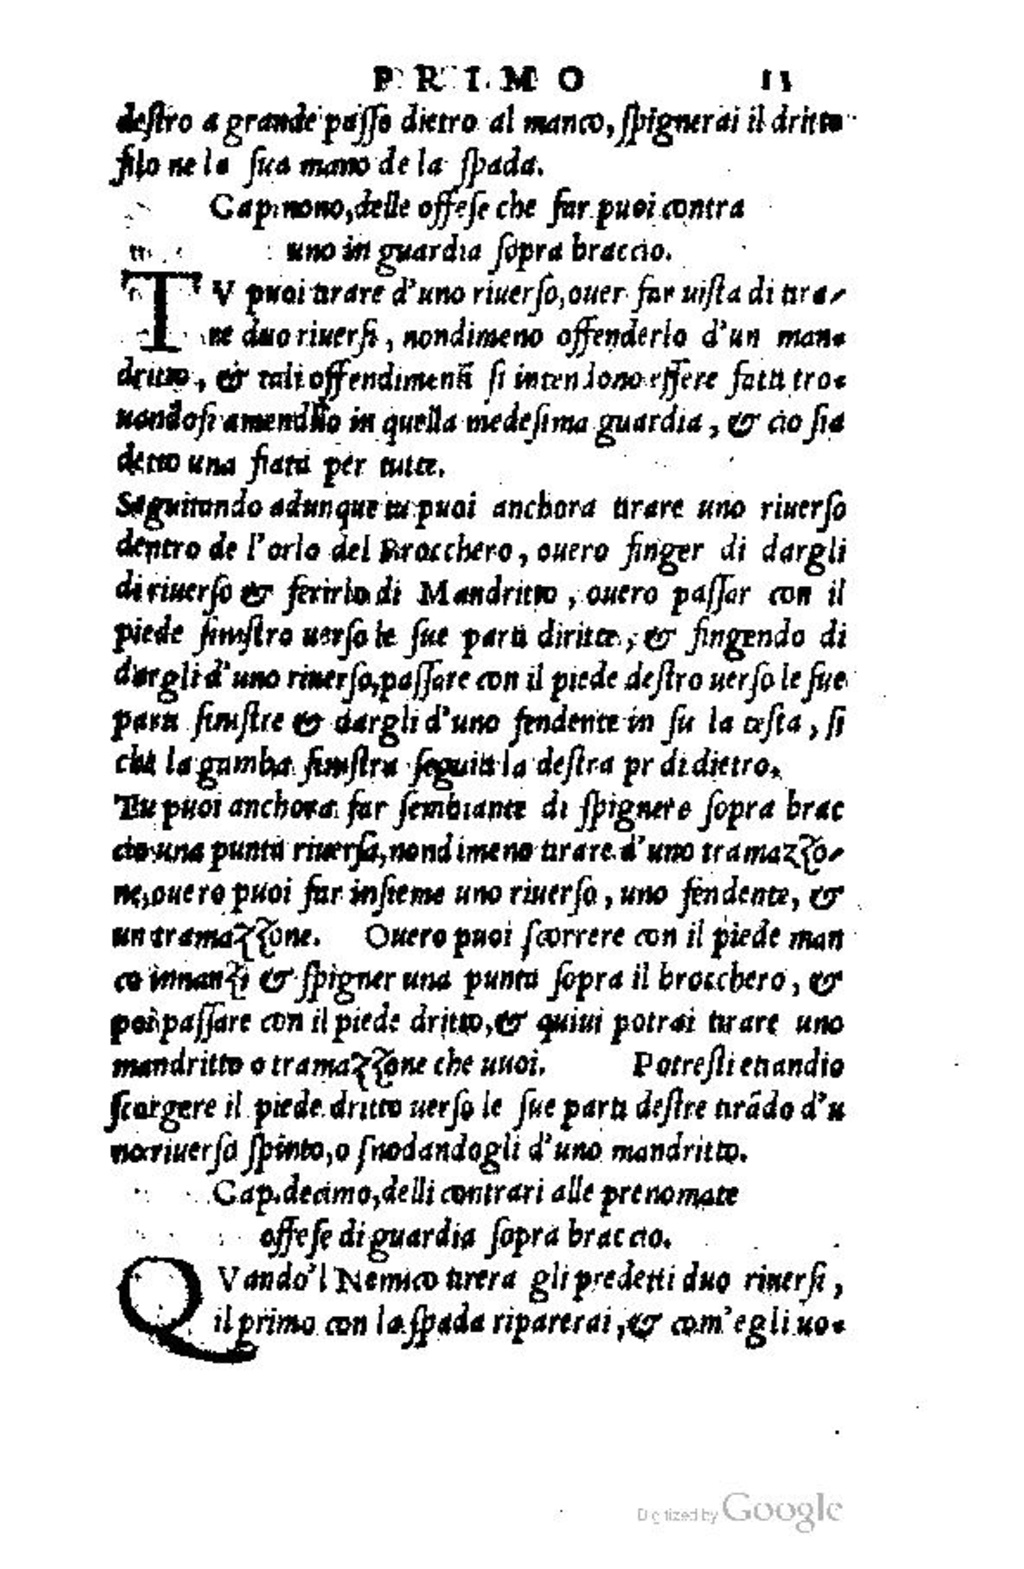 PRIMO 13
destro a grande passo dietro al manco, spignerai il dritto
filo ne la sua mano de la spada.
Cap. nono, delle offese che far puoi contra
uno in guardia sopra braccio.
TV puoi tirare d'uno riuerso, ouer far uista di tira-
re duo riuersi, nondimeno offenderlo d'un man-
dritto, & tali offendimenti si intendono essere fatti tro-
uandosi amenduo in quella medesima guardia, & cio sia
detto una fiata per tutte.
Seguitando adunque tu puoi anchora tirare uno riuerso
dentro de l'orlo del Brocchero, ouero finger di dargli
di riuerso & ferirlo di Mandritto, ouero passar con il
piede sinistro uerso le sue parti diritte, & fingendo di
dargli d'uno riuerso, passare con il piede destro uerso le sue
parti sinistre & dargli d'uno fendente in su la testa, si
che la gamba sinistra seguiti la destra pr di dietro.
Tu puoi anchora far sembiante di spignere sopra brac
cio una punta riuersa, nondimeno tirare d'uno tramazzo-
ne, ouero puoi far insieme uno riuerso, uno fendente, &
un tramazzone. Ouero puoi scorrere con il piede man
co innanzi & spigner una punta sopra il brocchero, &
poi passare con il piede dritto, & quiui potrai tirare uno
mandritto o tramazzone che uuoi. Potresti etiandio
scorgere il piede dritto uerso le sue parti destre tirãdo d'u
no riuerso spinto, o snodandogli d'uno mandritto.
Cap. decimo, delli contrari alle prenomate
offese di guardia sopra braccio.
QVando'l Nemico tirera gli predetti duo riuersi,
il primo con la spada riparerai, & com'egli uo-
Digitized by Google